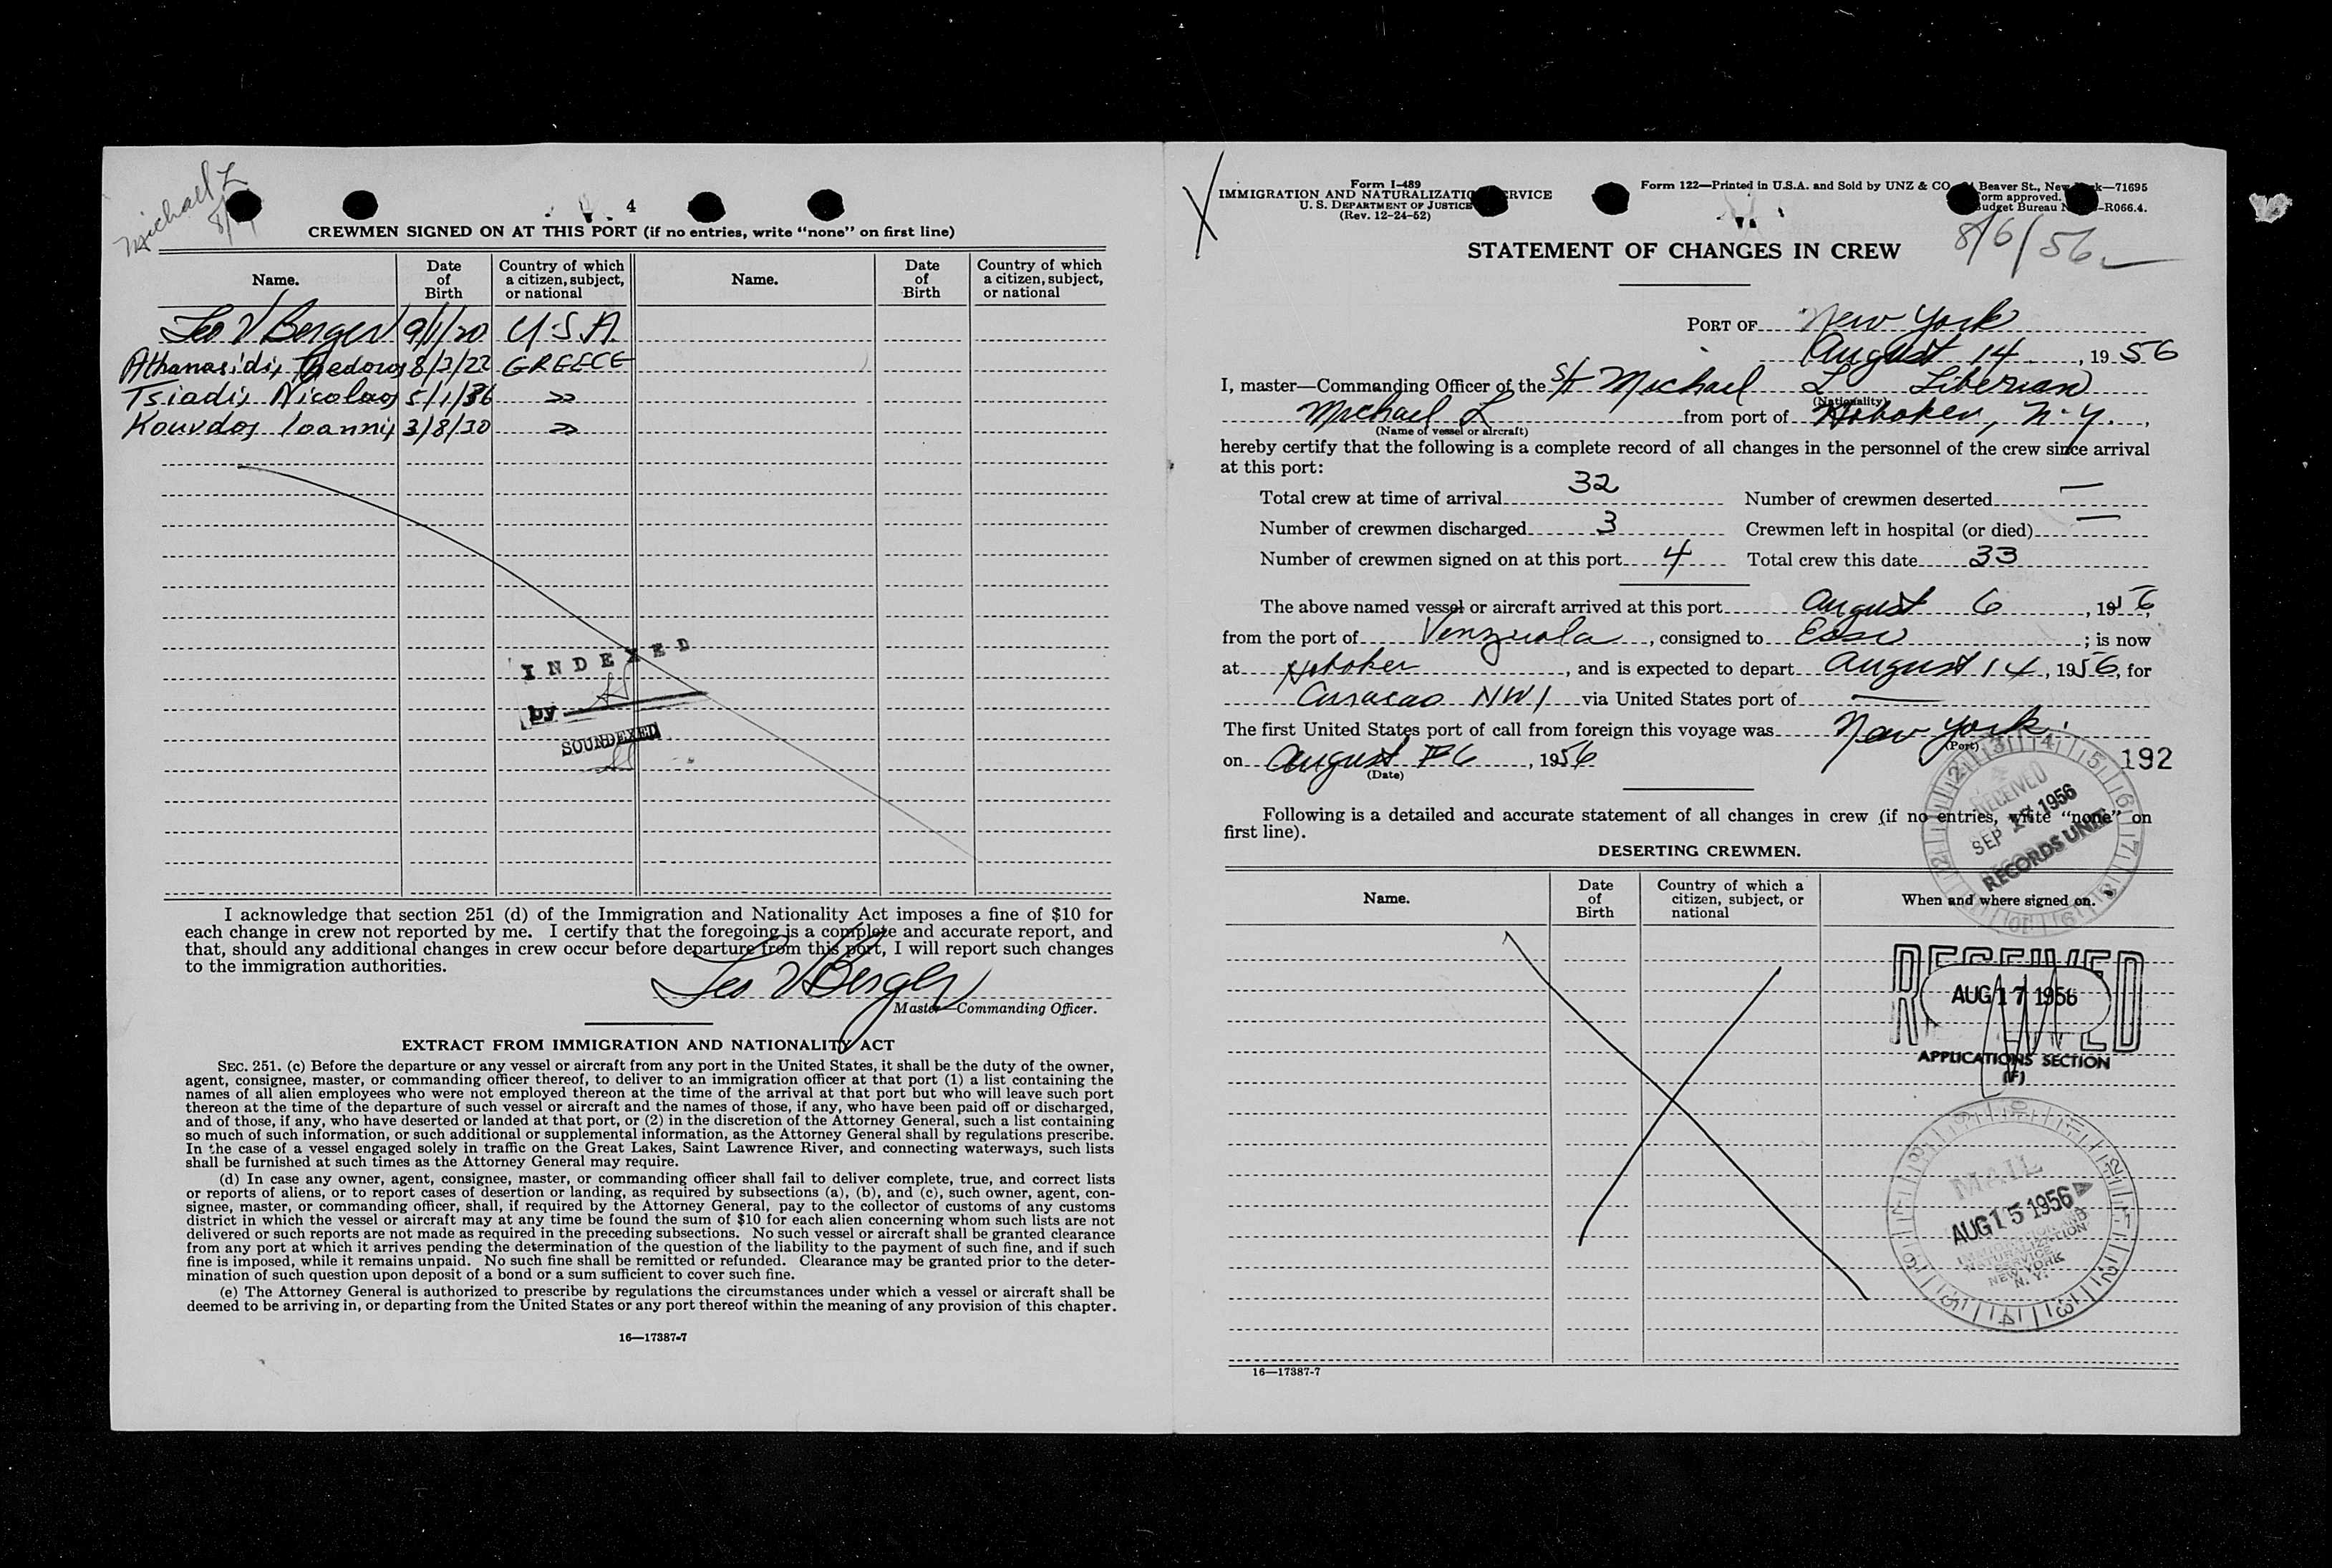 Michael L
4
CREWMEN SIGNED ON AT THIS PORT (if no entries, write "none" on first line)
Name. Date of Birth Country of which a citizen, subject, or national Name. Date of Birth Country of which a citizen, subject, or national
Leo V Berger 9/1/20 U.S.A.
Athanasidis Thedoros 8/2/22 GREECE
Tsiadis Nicolaos 5/1/36 »
Kouvdos Ioannis 3/8/30 »
INDEXED
by
SOUNDEXED
I acknowledge that section 251 (d) of the Immigration and Nationality Act imposes a fine of $10 for
each change in crew not reported by me. I certify that the foregoing is a complete and accurate report, and
that, should any additional changes in crew occur before departure from this port, I will report such changes
to the immigration authorities.
Leo V Berger
Master—Commanding Officer.
EXTRACT FROM IMMIGRATION AND NATIONALITY ACT
SEC. 251. (c) Before the departure or any vessel or aircraft from any port in the United States, it shall be the duty of the owner,
agent, consignee, master, or commanding officer thereof, to deliver to an immigration officer at that port (1) a list containing the
names of all alien employees who were not employed thereon at the time of the arrival at that port but who will leave such port
thereon at the time of the departure of such vessel or aircraft and the names of those, if any, who have been paid off or discharged,
and of those, if any, who have deserted or landed at that port, or (2) in the discretion of the Attorney General, such a list containing
so much of such information, or such additional or supplemental information, as the Attorney General shall by regulations prescribe.
In the case of a vessel engaged solely in traffic on the Great Lakes, Saint Lawrence River, and connecting waterways, such lists
shall be furnished at such times as the Attorney General may require.
(d) In case any owner, agent, consignee, master, or commanding officer shall fail to deliver complete, true, and correct lists
or reports of aliens, or to report cases of desertion or landing, as required by subsections (a), (b), and (c), such owner, agent, con-
signee, master, or commanding officer, shall, if required by the Attorney General, pay to the collector of customs of any customs
district in which the vessel or aircraft may at any time be found the sum of $10 for each alien concerning whom such lists are not
delivered or such reports are not made as required in the preceding subsections. No such vessel or aircraft shall be granted clearance
from any port at which it arrives pending the determination of the question of the liability to the payment of such fine, and if such
fine is imposed, while it remains unpaid. No such fine shall be remitted or refunded. Clearance may be granted prior to the deter-
mination of such question upon deposit of a bond or a sum sufficient to cover such fine.
(e) The Attorney General is authorized to prescribe by regulations the circumstances under which a vessel or aircraft shall be
deemed to be arriving in, or departing from the United States or any port thereof within the meaning of any provision of this chapter.
16—17387-7
X
Form I-489
IMMIGRATION AND NATURALIZATION SERVICE
U. S. DEPARTMENT OF JUSTICE
(Rev. 12-24-52)
Form 122—Printed in U.S.A. and Sold by UNZ & CO Beaver St., New York—71695
Form approved.
Budget Bureau -R066.4.
8/6/56
STATEMENT OF CHANGES IN CREW
PORT OF New York
August 14, 1956
I, master—Commanding Officer of the St Michael L Liberian
(Nationality)
Michael L from port of Hoboken, N.Y.,
(Name of vessel or aircraft)
hereby certify that the following is a complete record of all changes in the personnel of the crew since arrival
at this port:
Total crew at time of arrival 32 Number of crewmen deserted —
Number of crewmen discharged 3 Crewmen left in hospital (or died) —
Number of crewmen signed on at this port 4 Total crew this date 33
The above named vessel or aircraft arrived at this port August 6, 1956,
from the port of Venzuola, consigned to Esso; is now
at Hoboken, and is expected to depart August 14, 1956, for
Curacao NWI via United States port of —
The first United States port of call from foreign this voyage was New York.
(Port)
on August 6, 1956
(Date)
192
RECEIVED
SEP 17 1956
RECORDS UNIT
Following is a detailed and accurate statement of all changes in crew (if no entries, write "none" on
first line).
DESERTING CREWMEN.
Name. Date of Birth Country of which a citizen, subject, or national When and where signed on.
RECEIVED
AUG 17 1956
APPLICATIONS SECTION
(F)
MAIL
AUG 15 1956
IMMIGRATION AND
NATURALIZATION
SERVICE
NEW YORK
N. Y.
16—17387-7